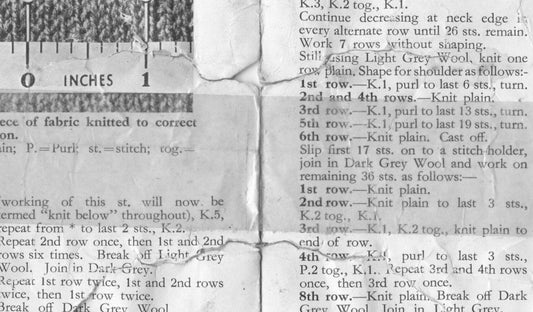 0 INCHES 1
ece of fabric knitted to correct
on.
in; P.=Purl; st.=stitch; tog.=
working of this st. will now be
termed "knit below" throughout), K.5,
repeat from * to last 2 sts., K.2.
Repeat 2nd row once, then 1st and 2nd
rows six times. Break off Light Grey
Wool. Join in Dark Grey.
Repeat 1st row twice, 1st and 2nd rows
twice, then 1st row twice.
Break off Dark Grey Wool
K.3, K.2 tog., K.1.
Continue decreasing at neck edge in
every alternate row until 26 sts. remain.
Work 7 rows without shaping.
Still using Light Grey Wool, knit one
row plain. Shape for shoulder as follows:-
1st row.—K.1, purl to last 6 sts., turn.
2nd and 4th rows.—Knit plain.
3rd row.—K.1, purl to last 13 sts., turn.
5th row.—K.1, purl to last 19 sts., turn.
6th row.—Knit plain. Cast off.
Slip first 17 sts. on to a stitch-holder,
join in Dark Grey Wool and work on
remaining 36 sts. as follows:—
1st row.—Knit plain.
2nd row.—Knit plain to last 3 sts.,
K.2 tog., K.1.
3rd row.—K.1, K.2 tog., knit plain to
end of row.
4th row.—K.1, purl to last 3 sts.,
P.2 tog., K.1. Repeat 3rd and 4th rows
once, then 3rd row once.
8th row.—Knit plain. Break off Dark
Grey Wool. Join in Light Grey.